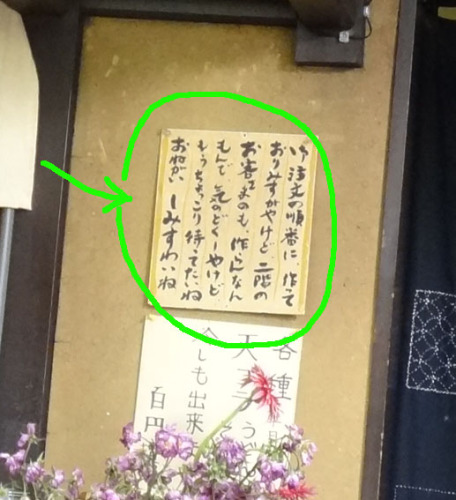 御注文の順番に、作って
おりみすがやけど 二階の
お客さまのも、作らんなん
もんで 気のどくーやけど
もうちょっこり待ってたいね
おねがい しみすわいね
各種
天
冷しも出来
百円